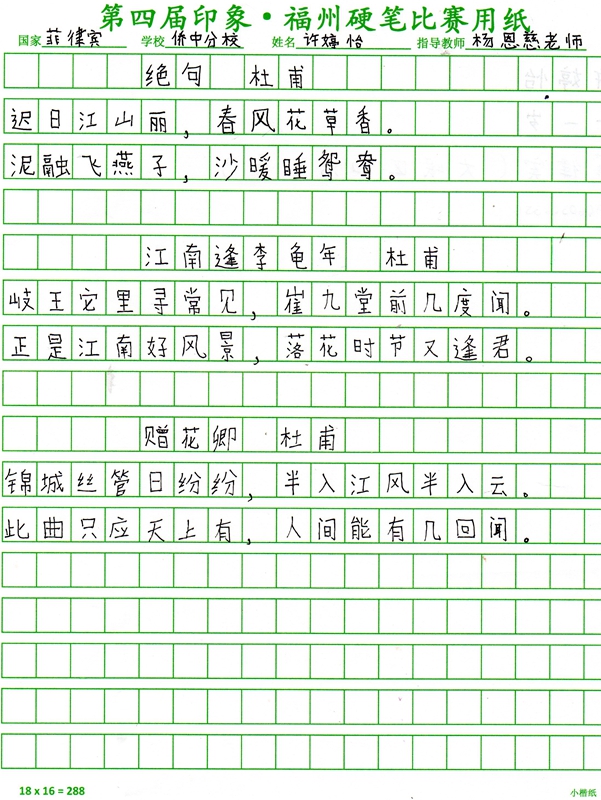 第四届印象·福州硬笔比赛用纸
国家 菲律宾 学校 侨中分校 姓名 许婷怡 指导教师 杨恩慈老师
绝句 杜甫
迟日江山丽，春风花草香。
泥融飞燕子，沙暖睡鸳鸯。
江南逢李龟年 杜甫
岐王宅里寻常见，崔九堂前几度闻。
正是江南好风景，落花时节又逢君。
赠花卿 杜甫
锦城丝管日纷纷，半入江风半入云。
此曲只应天上有，人间能有几回闻。
18 x 16 = 288 小楷纸